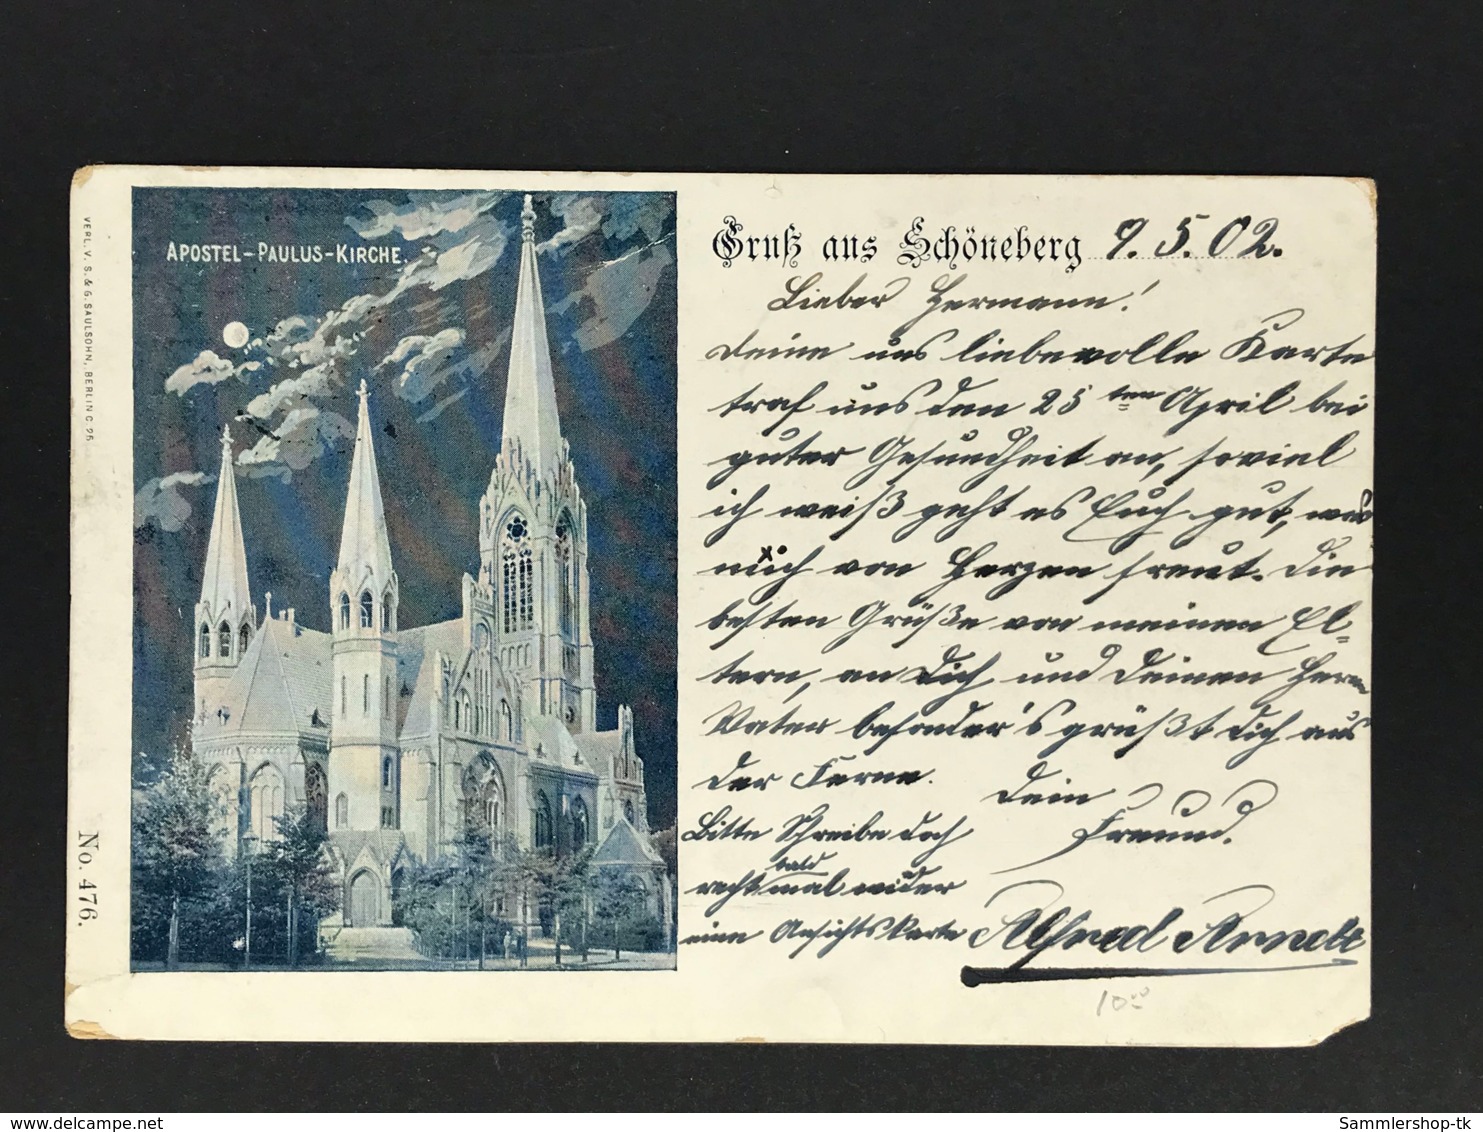 APOSTEL-PAULUS-KIRCHE.
VERL. V. S. & G. SAULSOHN, BERLIN C. 25.
No. 476.
Gruß aus Schöneberg 9.5.02.
Lieber Hermann!
Deine uns liebevolle Karte
traf uns den 25ten April bei
guter Gesundheit an, soviel
ich weiß geht es Euch gut, was
mich von Herzen freut. Die
besten Grüße von meinen El=
tern, an Dich und Deinen Herrn
Vater besonder's grüßt Dich aus
der Ferne. Dein
Freund.
Bitte Schreibe doch
recht bald mal wider
eine Ansichtskarte Alfred Arndt
10.00
Sammlershop-tk
www.delcampe.net